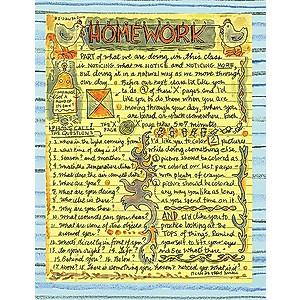 HOMEWORK
PART of what we are doing in this class
is NOTICING what we NOTICE and NOTICING MORE,
But doing it in a natural way as we move through
our day. Before our next class I'd like you
to do of these 'X' pages and I'd
like you to do them when you are
moving through your day, when you
are bored or stuck somewhere. Each
X page takes 5 or 7 minutes.
THE X PAGE
THE QUESTIONS
1. where is the light coming from?
2. what time of day is it?
3. Season? and weather?
4. what's the temperature like?
5. What does the air smell like?
6. who are you?
7. What are you doing?
8. Who else is there?
9. Why are you there?
10. What sounds can you hear?
11. What are some of the objects
around you?
12. What's directly in front of you?
13. To your right? 14. Left?
15. Behind you? 16. Below
I'd like you to COLOR 2 pictures
while doing something else.
picture should be colored as
we colored our last pages
with plenty of crayon.
picture should be colored
any way you like as long
as you spend time on it.
AND I'd like you to
practice looking at the
Tops of things. Remind
yourself to lift your eyes
and see what's there.